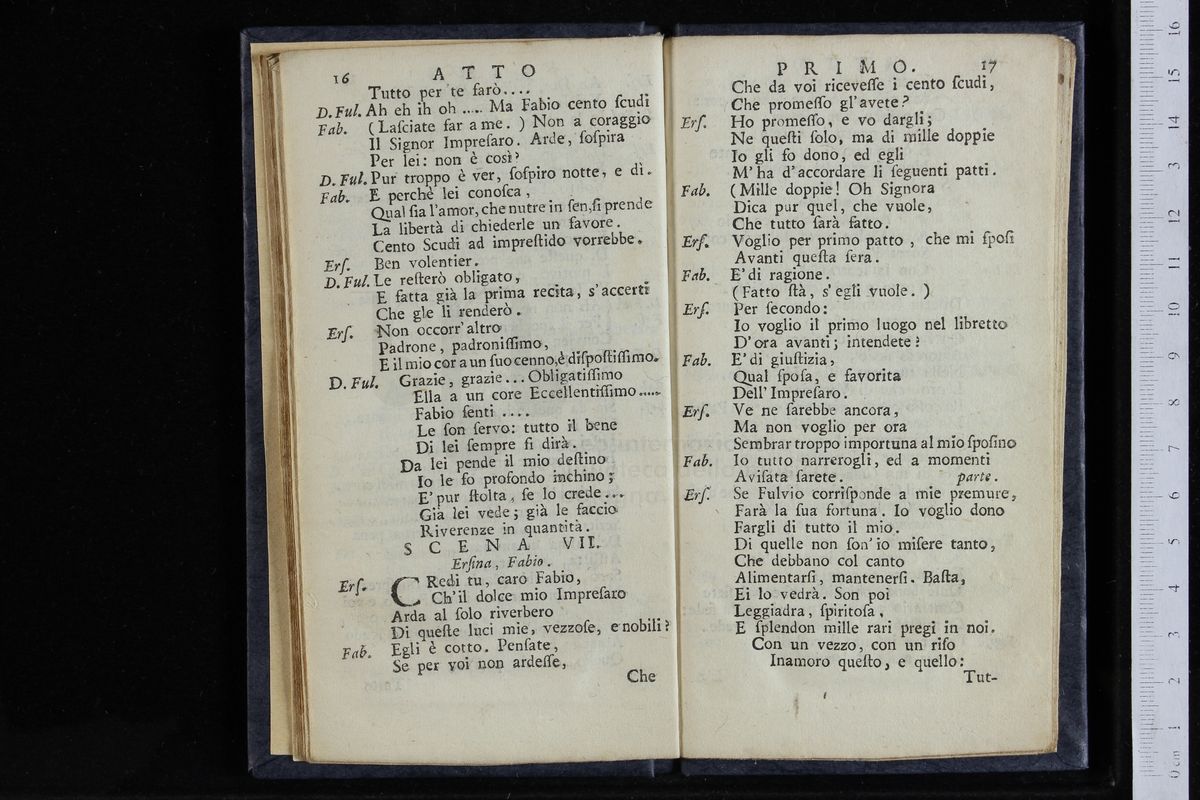 16 ATTO
Tutto per te ſarò....
D. Ful. Ah eh ih oh ..... Ma Fabio cento ſcudi
Fab. (Laſciate far a me. ) Non a coraggio
Il Signor Impreſaro. Arde, ſoſpira
Per lei: non è così?
D. Ful. Pur troppo è ver, ſoſpiro notte, e dì.
Fab. E perchè lei conoſca,
Qual ſia l'amor, che nutre in ſen, ſi prende
La libertà di chiederle un favore.
Cento Scudi ad impreſtido vorrebbe.
Erſ. Ben volentier.
D. Ful. Le reſterò obligato,
E fatta già la prima recita, s'accerti
Che gle li renderò.
Erſ. Non occorr'altro
Padrone, padroniſſimo,
E il mio cor a un ſuo cenno, è diſpoſtiſſimo.
D. Ful. Grazie, grazie... Obligatiſſimo
Ella a un core Eccellentiſſimo.....
Fabio ſenti ....
Le ſon ſervo: tutto il bene
Di lei ſempre ſi dirà.
Da lei pende il mio deſtino
Io le fo profondo inchino;
E' pur ſtolta, ſe lo crede...
Già lei vede; già le faccio
Riverenze in quantità.
SCENA VII.
Erſina, Fabio.
Erſ. CRedi tu, caro Fabio,
Ch'il dolce mio Impreſaro
Arda al ſolo riverbero
Di queſte luci mie, vezzoſe, e nobili?
Fab. Egli è cotto. Penſate,
Se per voi non ardeſſe,
Che
PRIMO. 17
Che da voi riceveſſe i cento ſcudi,
Che promeſſo gl'avete?
Erſ. Ho promeſſo, e vo dargli;
Ne queſti ſolo, ma di mille doppie
Io gli fo dono, ed egli
M'ha d'accordare li ſeguenti patti.
Fab. (Mille doppie! Oh Signora
Dica pur quel, che vuole,
Che tutto ſarà fatto.
Erſ. Voglio per primo patto, che mi ſpoſi
Avanti queſta ſera.
Fab. E' di ragione.
(Fatto ſtà, s'egli vuole. )
Erſ. Per ſecondo:
Io voglio il primo luogo nel libretto
D'ora avanti; intendete?
Fab. E' di giuſtizia,
Qual ſpoſa, e favorita
Dell' Impreſaro.
Erſ. Ve ne ſarebbe ancora,
Ma non voglio per ora
Sembrar troppo importuna al mio ſpoſino
Fab. Io tutto narrerogli, ed a momenti
Aviſata ſarete. parte.
Erſ. Se Fulvio corriſponde a mie premure,
Farà la ſua fortuna. Io voglio dono
Fargli di tutto il mio.
Di quelle non ſon' io miſere tanto,
Che debbano col canto
Alimentarſi, mantenerſi. Baſta,
Ei lo vedrà. Son poi
Leggiadra, ſpiritoſa,
E ſplendon mille rari pregi in noi.
Con un vezzo, con un riſo
Inamoro queſto, e quello:
Tut-